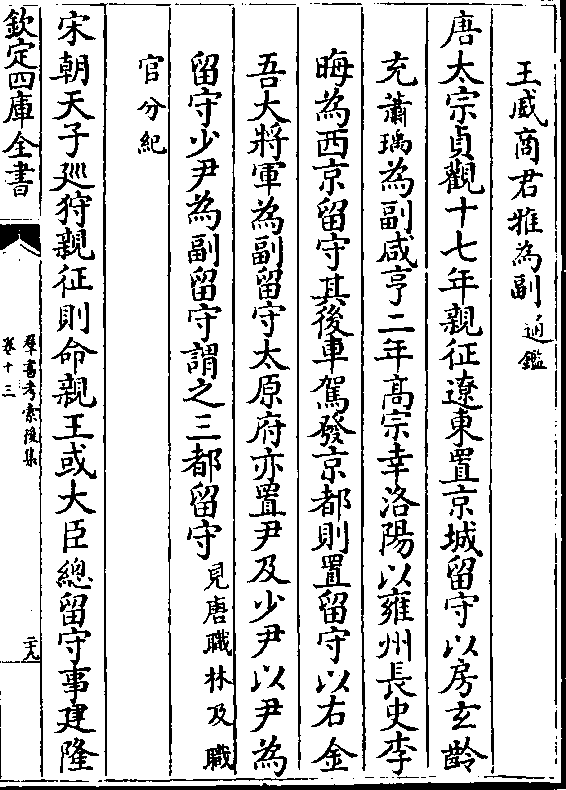 王威商君雅為副通鑑
唐太宗貞觀十七年親征遼東置京城留守以房玄齡
充蕭瑀為副咸亨二年髙宗幸洛陽以雍州長史李
晦為西京留守其後車駕發京都則置留守以右金
吾大將軍為副留守太原府亦置尹及少尹以尹為
留守少尹為副留守謂之三都留守見唐職林及職
官分紀
宋朝天子廵狩親征則命親王或大臣總留守事建隆
欽定四庫全書
羣書考索後集
卷十三
二十九